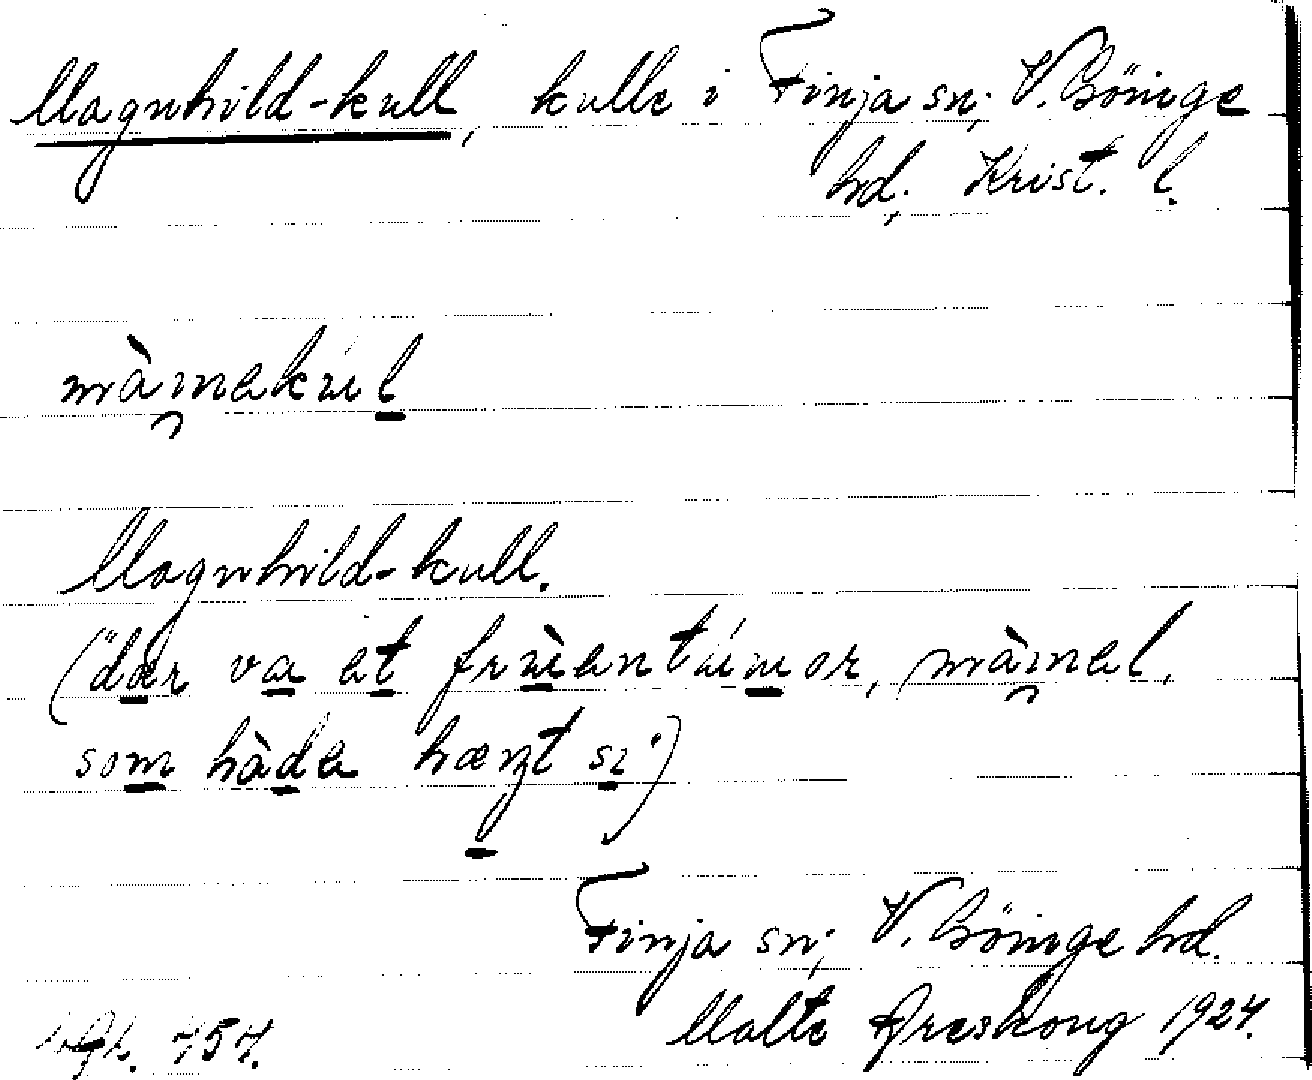 Magnhild-kull, kulle i Finja sn; V. Göinge
hd; Krist. l.
mànnekúl
Magnhild-kull.
("dær va et frùentúmor, mànnel,
som hàde hænt si")
Finja sn; V. Göinge hd.
Malte Areskoug 1924.
457.